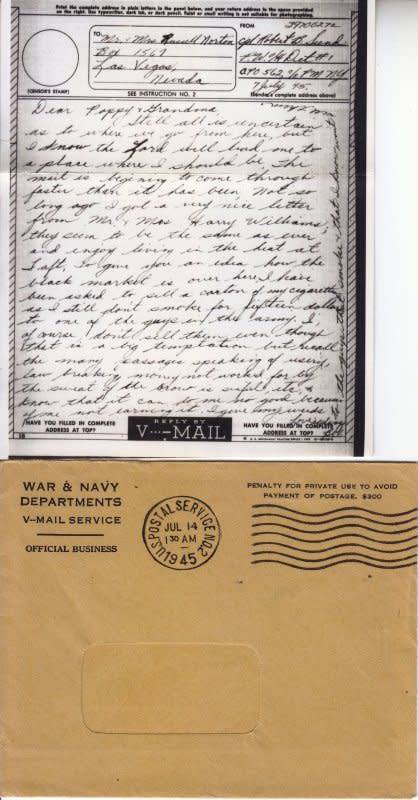 Print the complete address in plain letters in the panel below, and your return address in the space provided
on the right. Use typewriter, dark ink, or dark pencil. Faint or small writing is not suitable for photographing.
TO:
Mr. & Mrs Russell Norton
Box 1567
Las Vegas,
Nevada
FROM
Cpl Robert B.
A.P.O. 562, % P.M. N.Y.
7 July 45
(Sender's complete address)
(CENSOR'S STAMP)
SEE INSTRUCTION NO. 2
Dear Poppy & Grandma
Still all is uncertain
as to where we go from here but
I know the Lord will lead one to
a place where I should be. the
mail is begining to come through
faster then it has been. Not so
long ago I got a very nice letter
from Mr. & Mrs Harry Williams,
they seem to be the same as ever
and enjoy living in the heat at
Taft. To give you an idea how the
black market is over here I have
been asked to sell a carton of my cigarettes
as I still dont smoke for fifteen dollars
to one of the guys in the army, I
of course dont sell them even though
that is a temptation but recall
the many passages speaking of usery
law breaking money not worked for by
the sweat of the brow is sinful etc &
know that it can do me no good because
of me not earning it. I give
HAVE YOU FILLED IN COMPLETE
ADDRESS AT TOP?
REPLY BY
V···–MAIL
HAVE YOU FILLED IN COMPLETE
ADDRESS AT TOP?
WAR & NAVY
DEPARTMENTS
V–MAIL SERVICE
OFFICIAL BUSINESS
U.S. POSTAL SERVICE NO. 2
JUL 14
1 30 AM
1945
PENALTY FOR PRIVATE USE TO AVOID
PAYMENT OF POSTAGE, $300